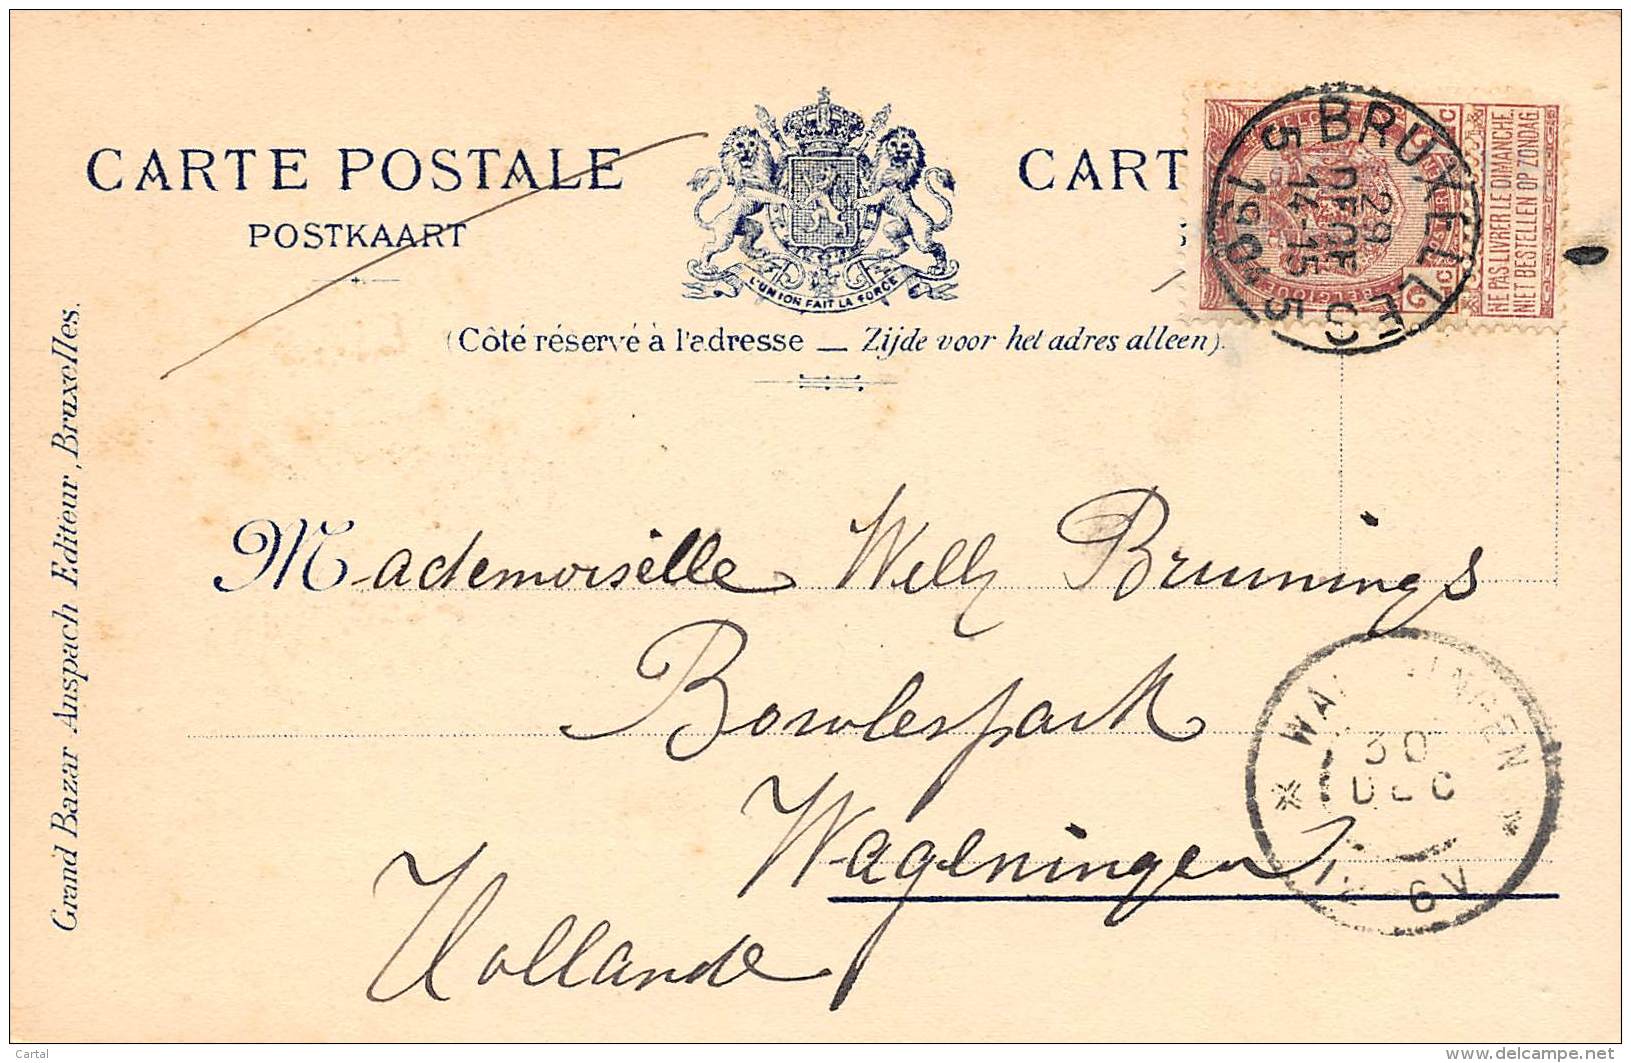 CARTE POSTALE
POSTKAART
CART
L'UNION FAIT LA FORCE
(Côté réservé à l'adresse — Zijde voor het adres alleen).
NE PAS LIVRER LE DIMANCHE
NIET BESTELLEN OP ZONDAG
BRUXELLES 5
29
DEC
14-15
1905
Mademoiselle Willy Brunings
Bowlespark
Wageningen
Hollande
WAGENINGEN
30
DEC
6V
Grand Bazar Anspach Editeur, Bruxelles.
Cartal
www.delcampe.net